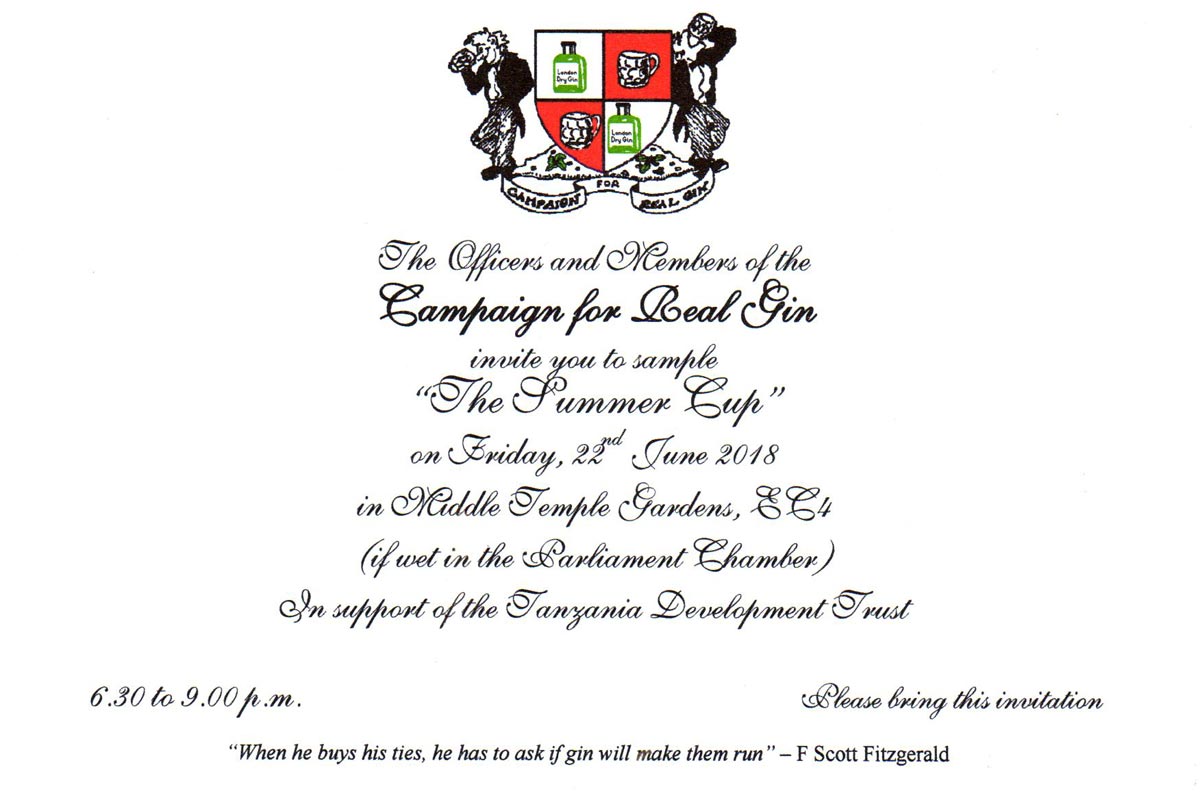 London
Dry Gin
London
Dry Gin
CAMPAIGN FOR REAL GIN
The Officers and Members of the
Campaign for Real Gin
invite you to sample
“The Summer Cup”
on Friday, 22nd June 2018
in Middle Temple Gardens, EC4
(if wet in the Parliament Chamber)
In support of the Tanzania Development Trust
6.30 to 9.00 p.m.
Please bring this invitation
“When he buys his ties, he has to ask if gin will make them run” – F Scott Fitzgerald